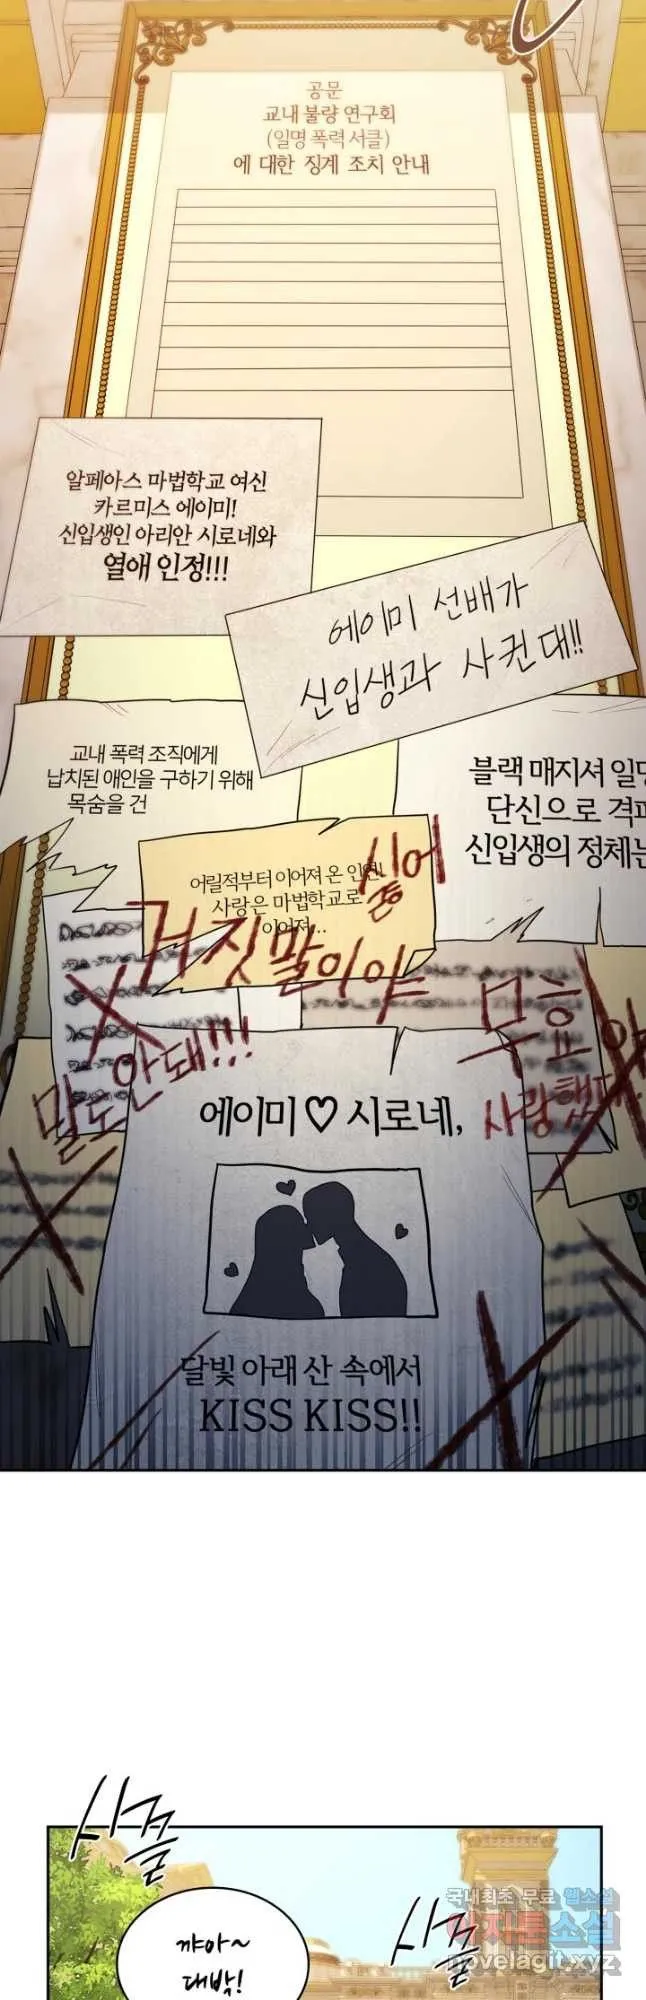 공문
교내 불량 연구회
(일명 폭력 서클)
에 대한 징계 조치 안내
알페아스 마법학교 여신
카르미스 에이미!
신입생인 아리안 시로네와
열애 인정!!!
에이미 선배가
신입생과 사귄대!!
교내 폭력 조직에게
납치된 애인을 구하기 위해
목숨을 건
블랙 매지셔 일명
단신으로 격파
신입생의 정체는
어릴적부터 이어져 온 인연!
사랑은 마법학교로
이어져...
싫어
거짓말이야
말도 안돼!!!
무효야
사랑했다
에이미 ♡ 시로네,
달빛 아래 산 속에서
KISS KISS!!
시끌
시끌
꺄아~
대박!
국내최초 무료 웹소설
novelagit.xyz